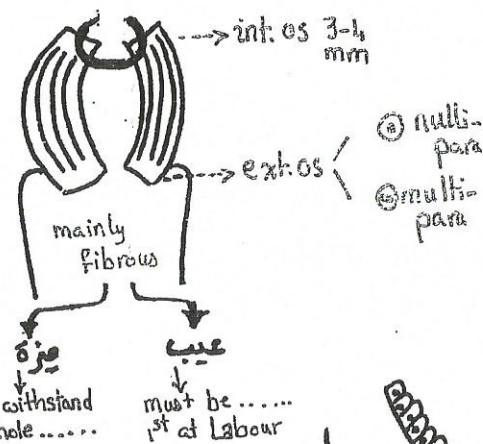 int. os 3-4
mm
ext. os
nulli-
para
multi-
para
mainly
fibrous
ميزة
عيب
withstand
hole ......
must be ......
1st at Labour